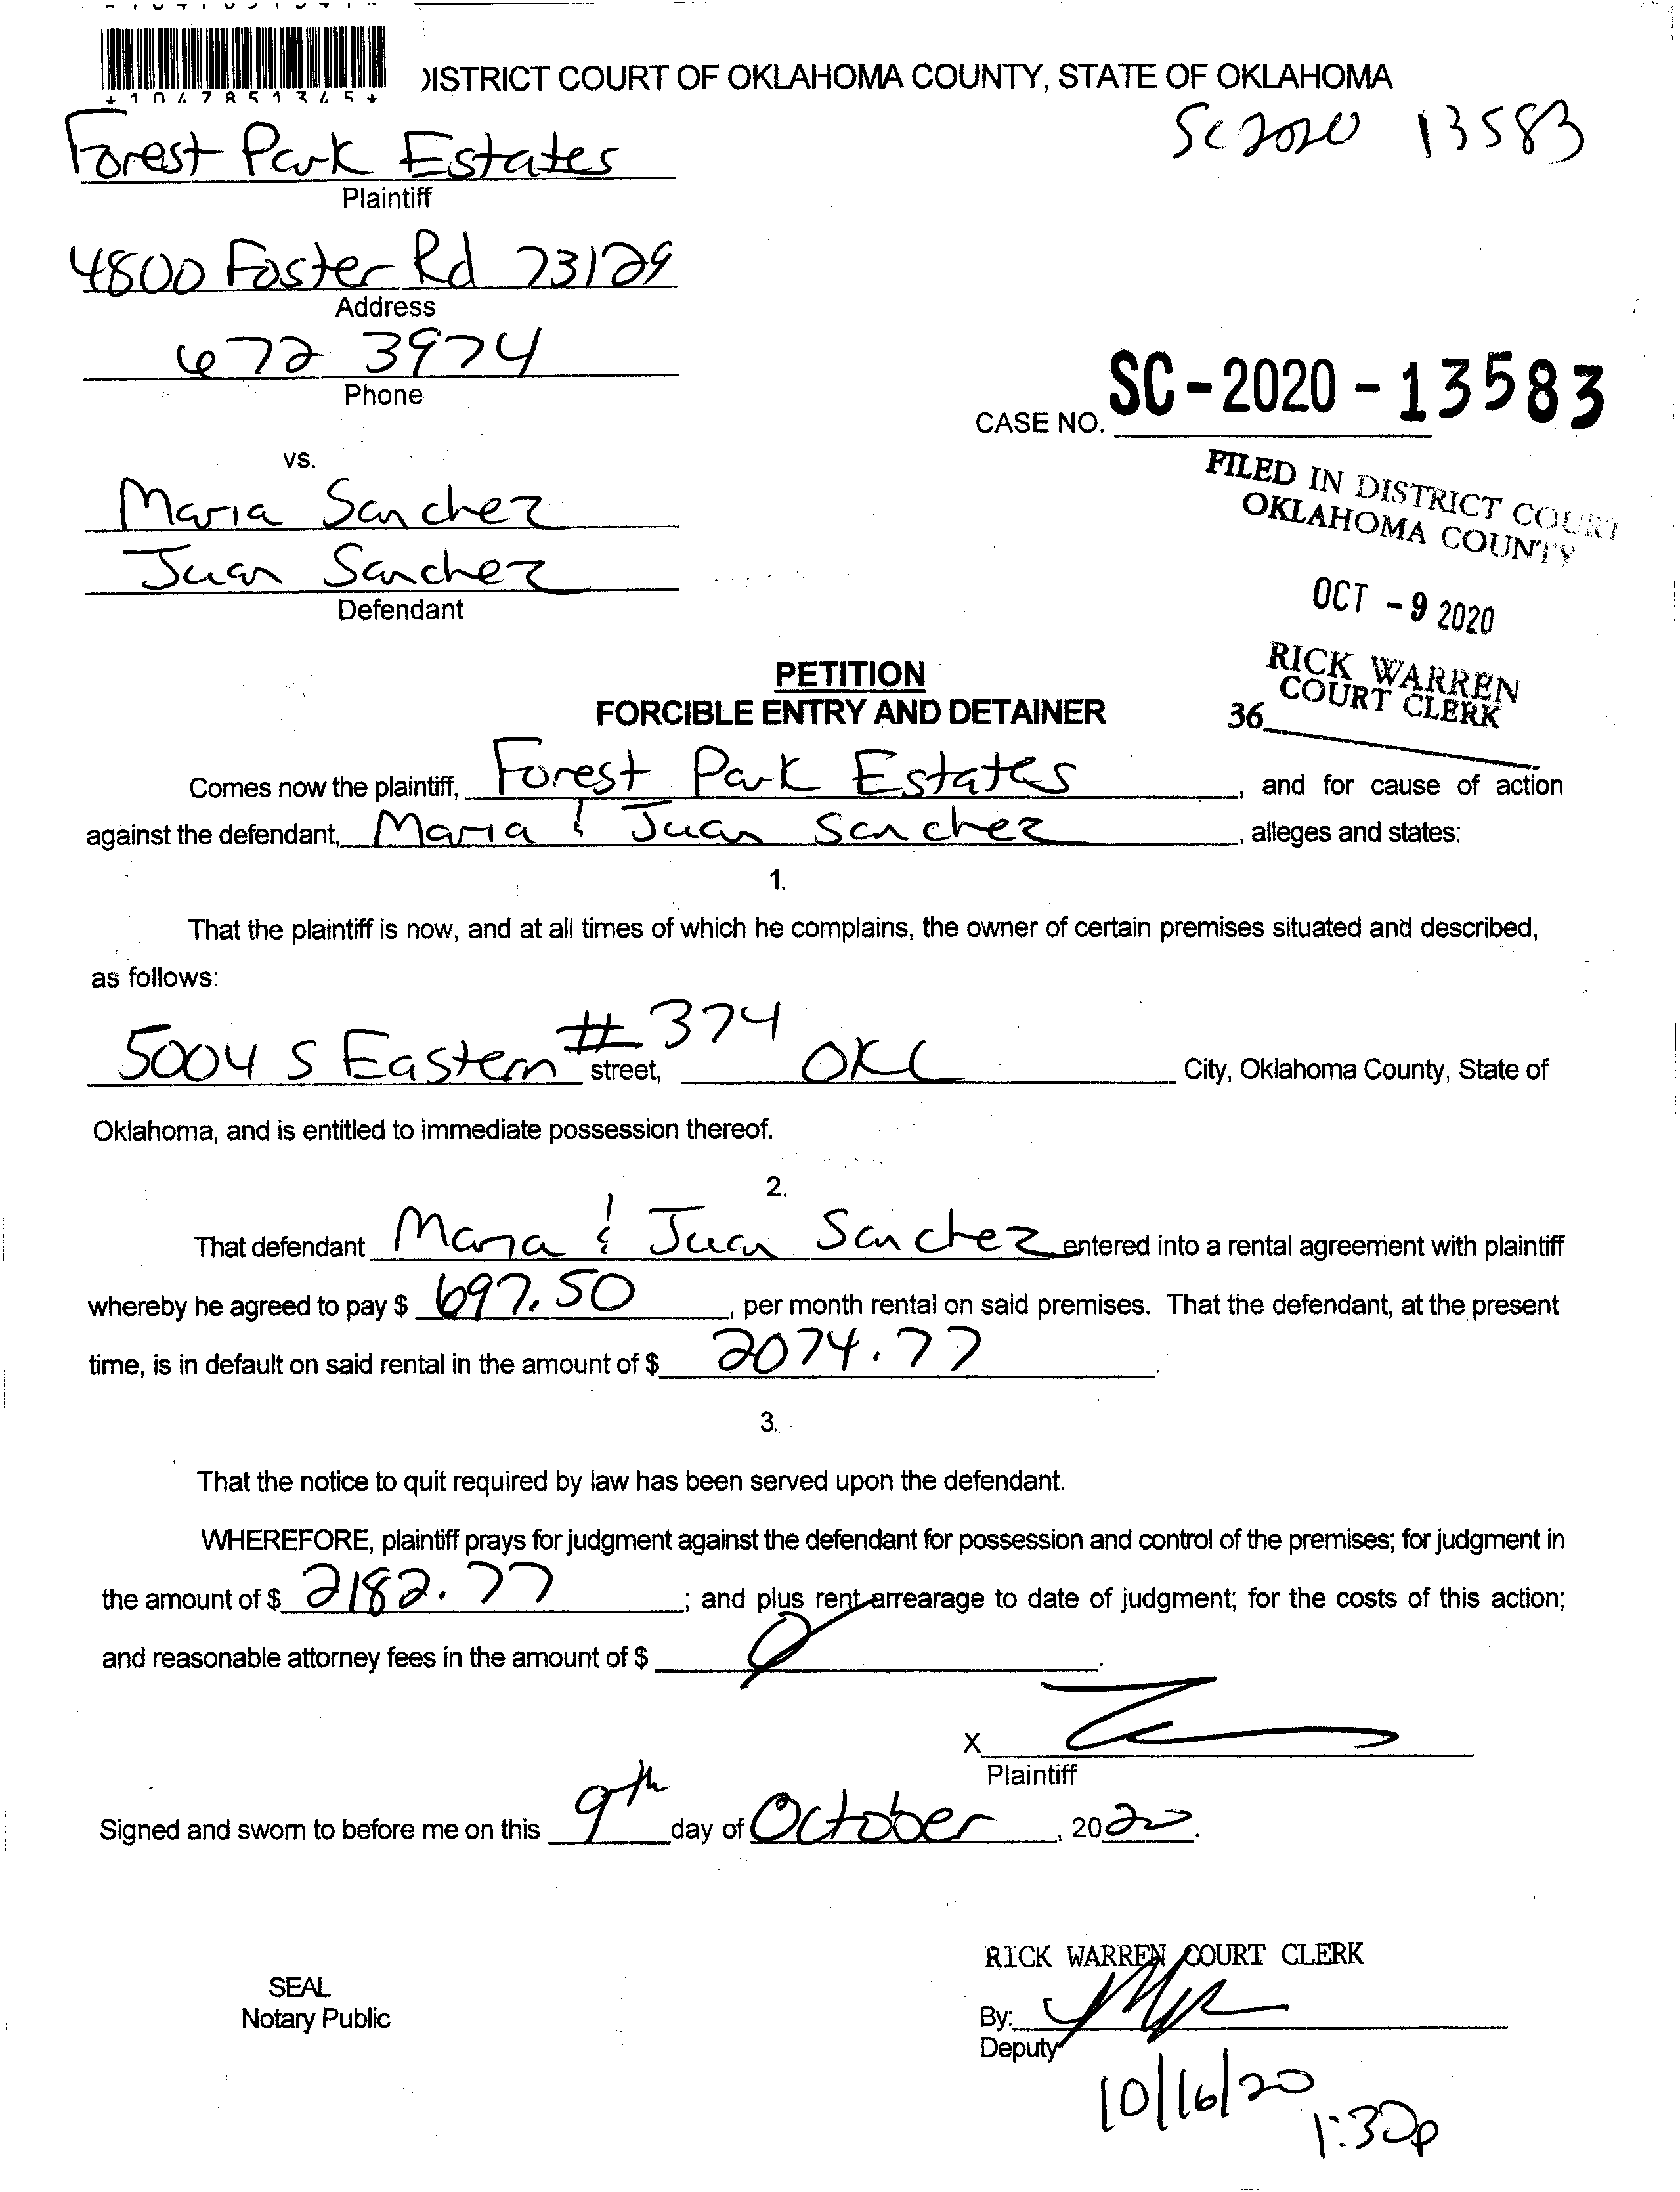 *1047851345*
DISTRICT COURT OF OKLAHOMA COUNTY, STATE OF OKLAHOMA
SC2020 13583
Forest Park Estates
Plaintiff
4800 Foster Rd 73129
Address
672 3974
Phone
CASE NO. SC-2020-13583
vs.
FILED IN DISTRICT COURT
OKLAHOMA COUNTY
Maria Sanchez
Juan Sanchez
Defendant
OCT -9 2020
RICK WARREN
COURT CLERK
36
PETITION
FORCIBLE ENTRY AND DETAINER
Comes now the plaintiff, Forest Park Estates, and for cause of action
against the defendant, Maria & Juan Sanchez, alleges and states:
1.
That the plaintiff is now, and at all times of which he complains, the owner of certain premises situated and described,
as follows:
5004 S Eastern #374 street, OKC City, Oklahoma County, State of
Oklahoma, and is entitled to immediate possession thereof.
2.
That defendant Maria & Juan Sanchez entered into a rental agreement with plaintiff
whereby he agreed to pay $ 697.50, per month rental on said premises. That the defendant, at the present
time, is in default on said rental in the amount of $ 2074.77.
3.
That the notice to quit required by law has been served upon the defendant.
WHEREFORE, plaintiff prays for judgment against the defendant for possession and control of the premises; for judgment in
the amount of $ 2182.77; and plus rent arrearage to date of judgment; for the costs of this action;
and reasonable attorney fees in the amount of $ 0.
X
Plaintiff
Signed and sworn to before me on this 9th day of October, 2020.
RICK WARREN COURT CLERK
SEAL
Notary Public
By:
Deputy
10/16/20
1:30p